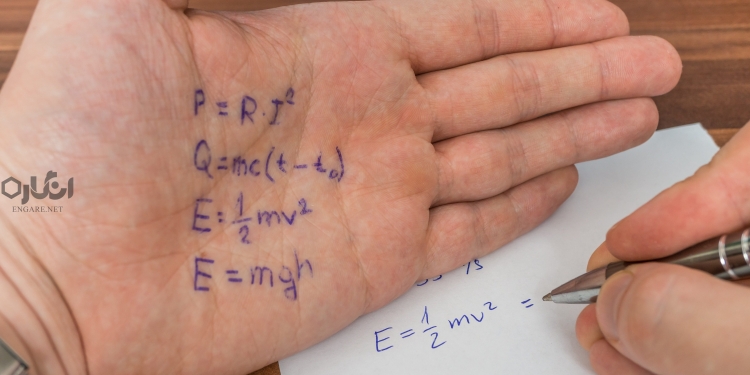 P = R.I²
Q = mc(t - t₀)
E = 1/2 mv²
E = mgh
انگاره
ENGARE.NET
E = 1/2 mv² =